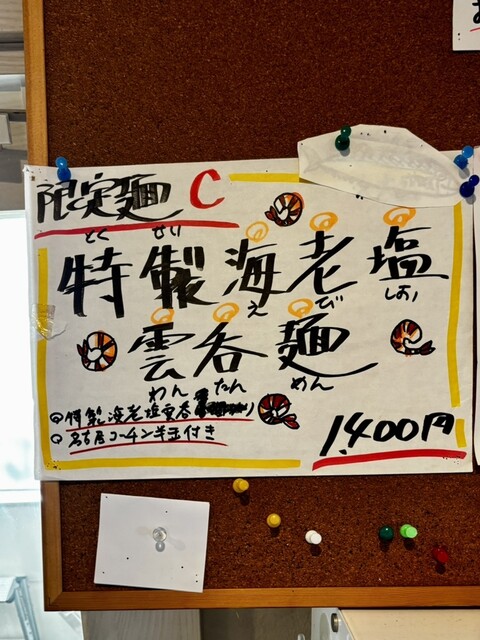 限定麺 C
とく せい
特製海老塩
えび しお
雲呑麺
わん たん めん
◎特製海老塩雲呑
◎名古屋コーチン半玉付き
1,400円